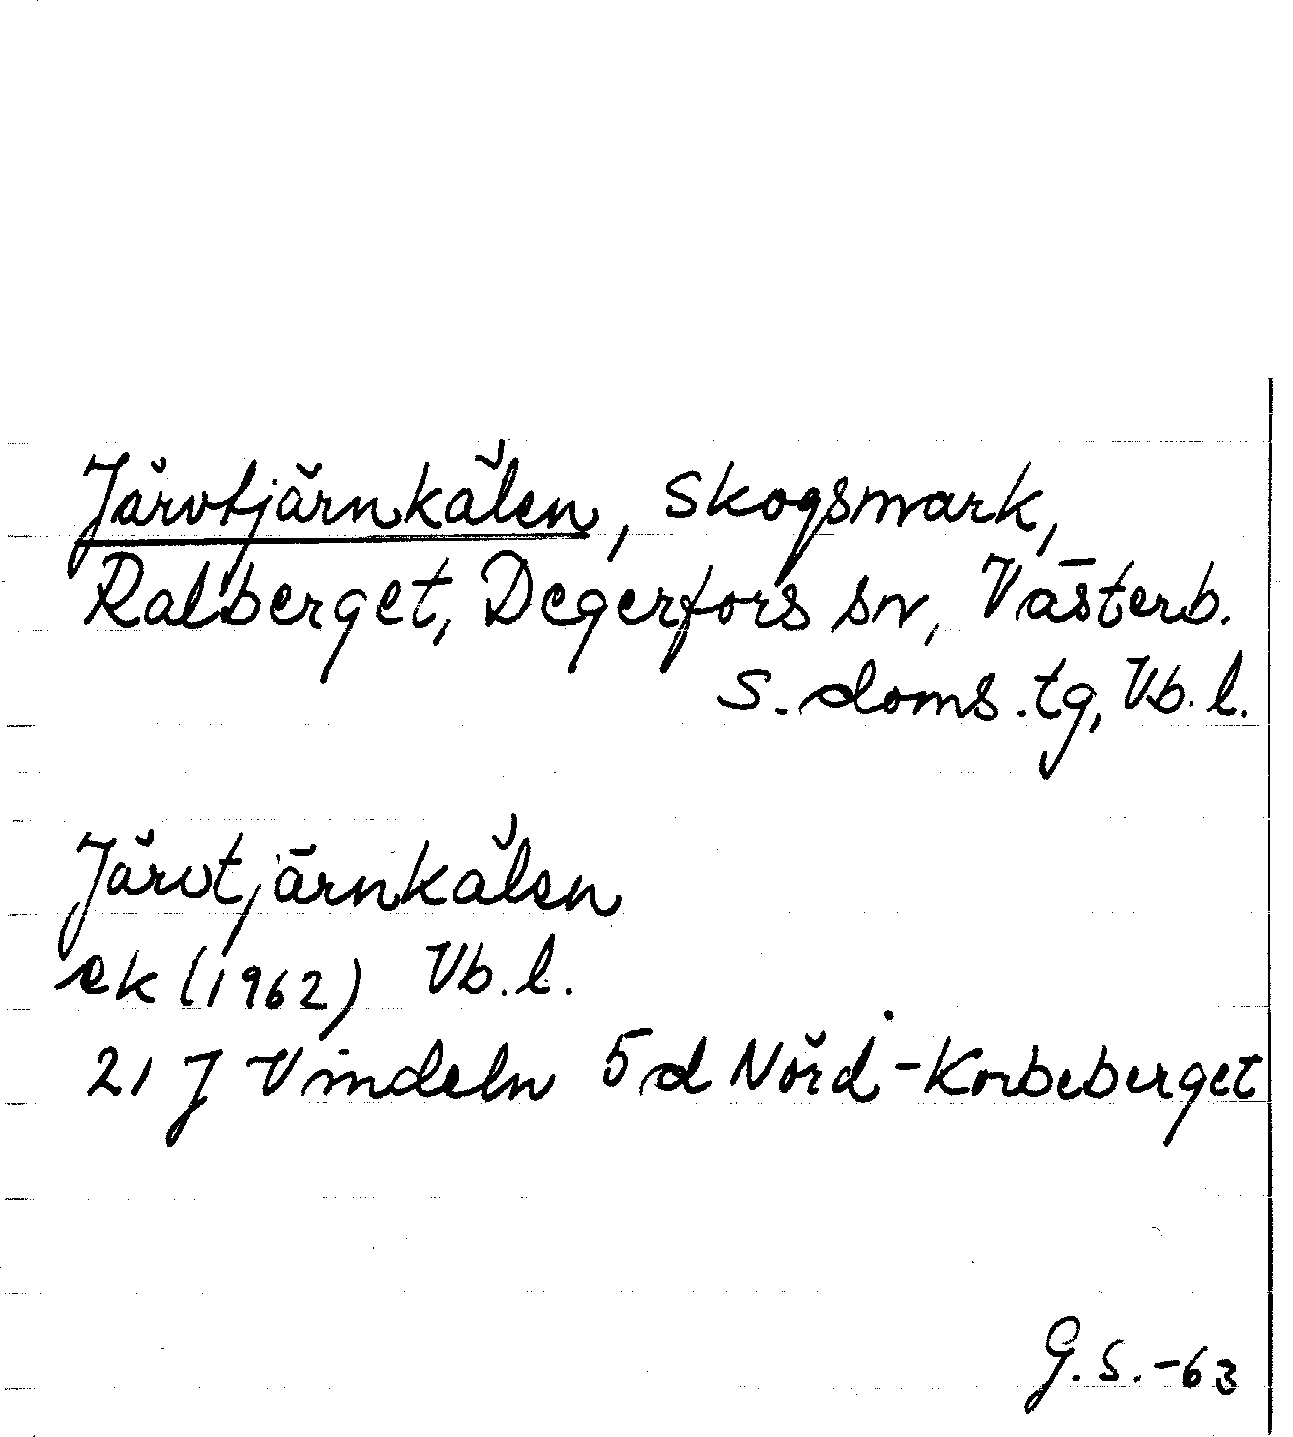 Järvtjärnkälen, skogsmark,
Ralberget, Degerfors sn, Västerb.
s. doms.tg, Vb. l.
Järvtjärnkälen
ek (1962) Vb. l.
21 J Vindeln 5 d Nörd-Korbeberget
G. S. -63